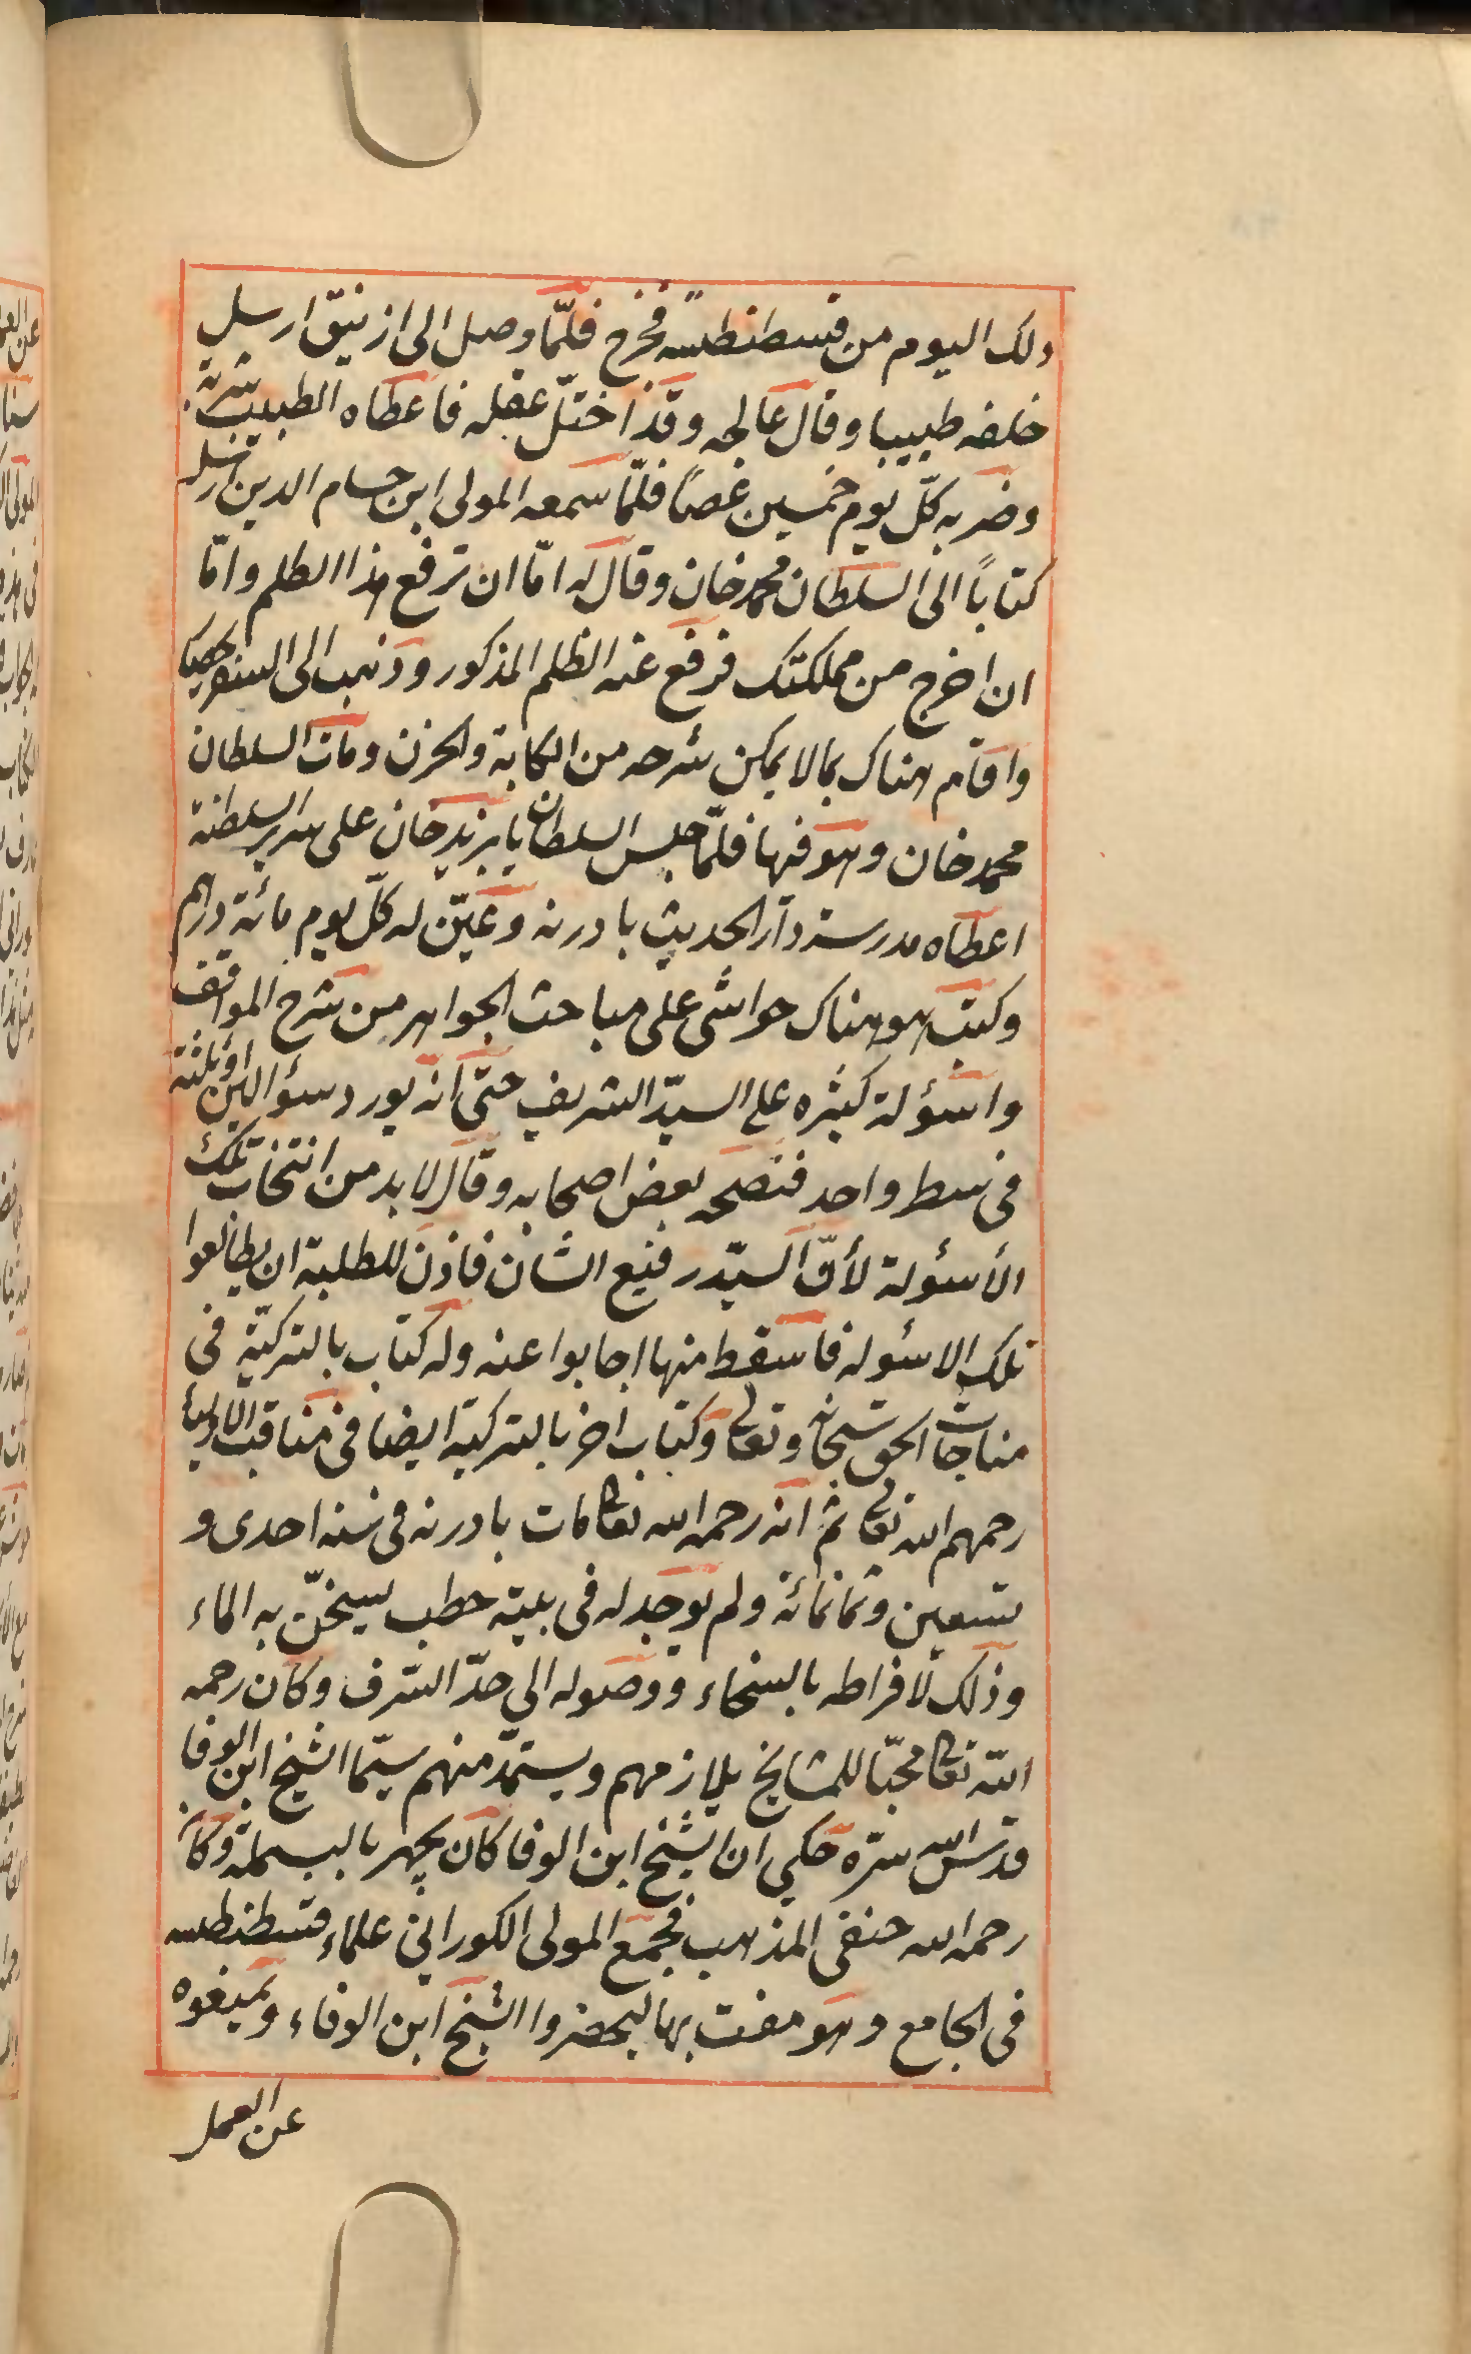 ذلك اليوم من قسطنطنيه فخرج فلمّا وصل الى ازنيق ارسل
خلفه طبيبا وقال عالجه وقد اختلّ عقله فاعطاه الطبيب شربة
وضربه كلّ يوم خمسين عَصًا فلمّا سمعه المولى ابن حسام الدين ارسله
كتاباً الى السلطان محمد خان وقال له امّا ان ترفع هذا الظلم وامّا
ان اخرج من مملكتك فرفع عنه الظلم المذكور وذهب الى السفريحصار
واقام هناك بمالا يمكن شرحه من الكابة والحزن ومات السلطان
محمد خان وهو فيها فلمّا جلس السلطان بايزيد خان على سرير السلطنة
اعطاه مدرسة دار الحديث بادرنه وعيّن له كلّ يوم مائة درهم
وكتب هو هناك حواشى على مباحث الجواهر من شرح المواقف
واسؤلة كثيره على السيّد الشريف حتى انه يورد سؤالين او ثلثة
فى سطر واحد فنصحه بعض اصحابه وقال لابد من انتخاب تلك
الأسؤلة لأنّ السيّد رفيع الشان فاذن للطلبة ان يطالعوا
تلك الاسئوله فاسقط منها اجابوا عنه وله كتاب بالتركيّة فى
مناجات الحق سبحانه وتعالى وكتاب اخر بالتركية ايضا فى مناقب الاولياء
رحمهم الله تعالى ثم انه رحمه الله تعالى مات بادرنه فى سنه احدى و
تسعين وثمانمائة ولم يوجد له فى بيته حطب يسخّن به الماء
وذلك لافراطه بالسخاء ووصوله الى حدّ السّرف وكان رحمه
الله تعالى محبّا للمشايخ يلازمهم ويستمدّ منهم سيّما الشيخ ابن الوفا
قدّس الله سرّه حكي ان الشيخ ابن الوفا كان يجهر بالبسملة وكان
رحمه الله حنفى المذهب فجمع المولى الكورانى علماء قسطنطنيه
فى الجامع وهو مفت بها ليحضروا الشيخ ابن الوفاء ويمنعوه
عن العمل